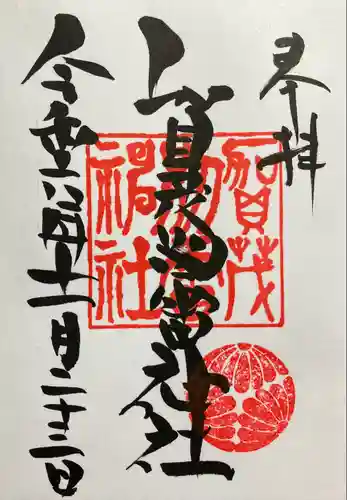 奉拝
賀茂別雷神社
賀茂
令和年十一月二十三日